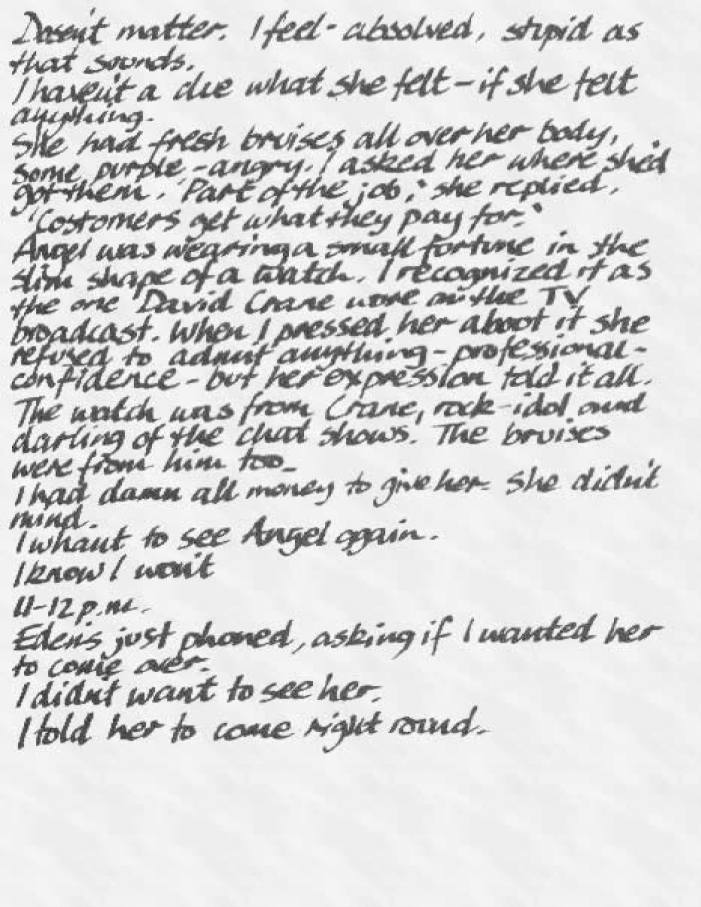 Doesn't matter. I feel - absolved, stupid as
that sounds.
I haven't a clue what she felt - if she felt
anything.
She had fresh bruises all over her body,
some purple - angry. I asked her where she'd
got them. 'Part of the job,' she replied.
'Costomers get what they pay for.'
Angel was wearing a small fortune in the
slim shape of a watch. I recognized it as
the one David Crane wore on the TV
broadcast. When I pressed her aboot it she
refused to admit anything - professional -
confidence - but her expression told it all.
The watch was from Crane, rock-idol and
darling of the chat shows. The bruises
were from him too.
I had damn all money to give her. She didn't
mind.
I whant to see Angel again.
I know I won't
11-12 p.m.
Eden's just phoned, asking if I wanted her
to come over.
I didn't want to see her.
I told her to come right round.